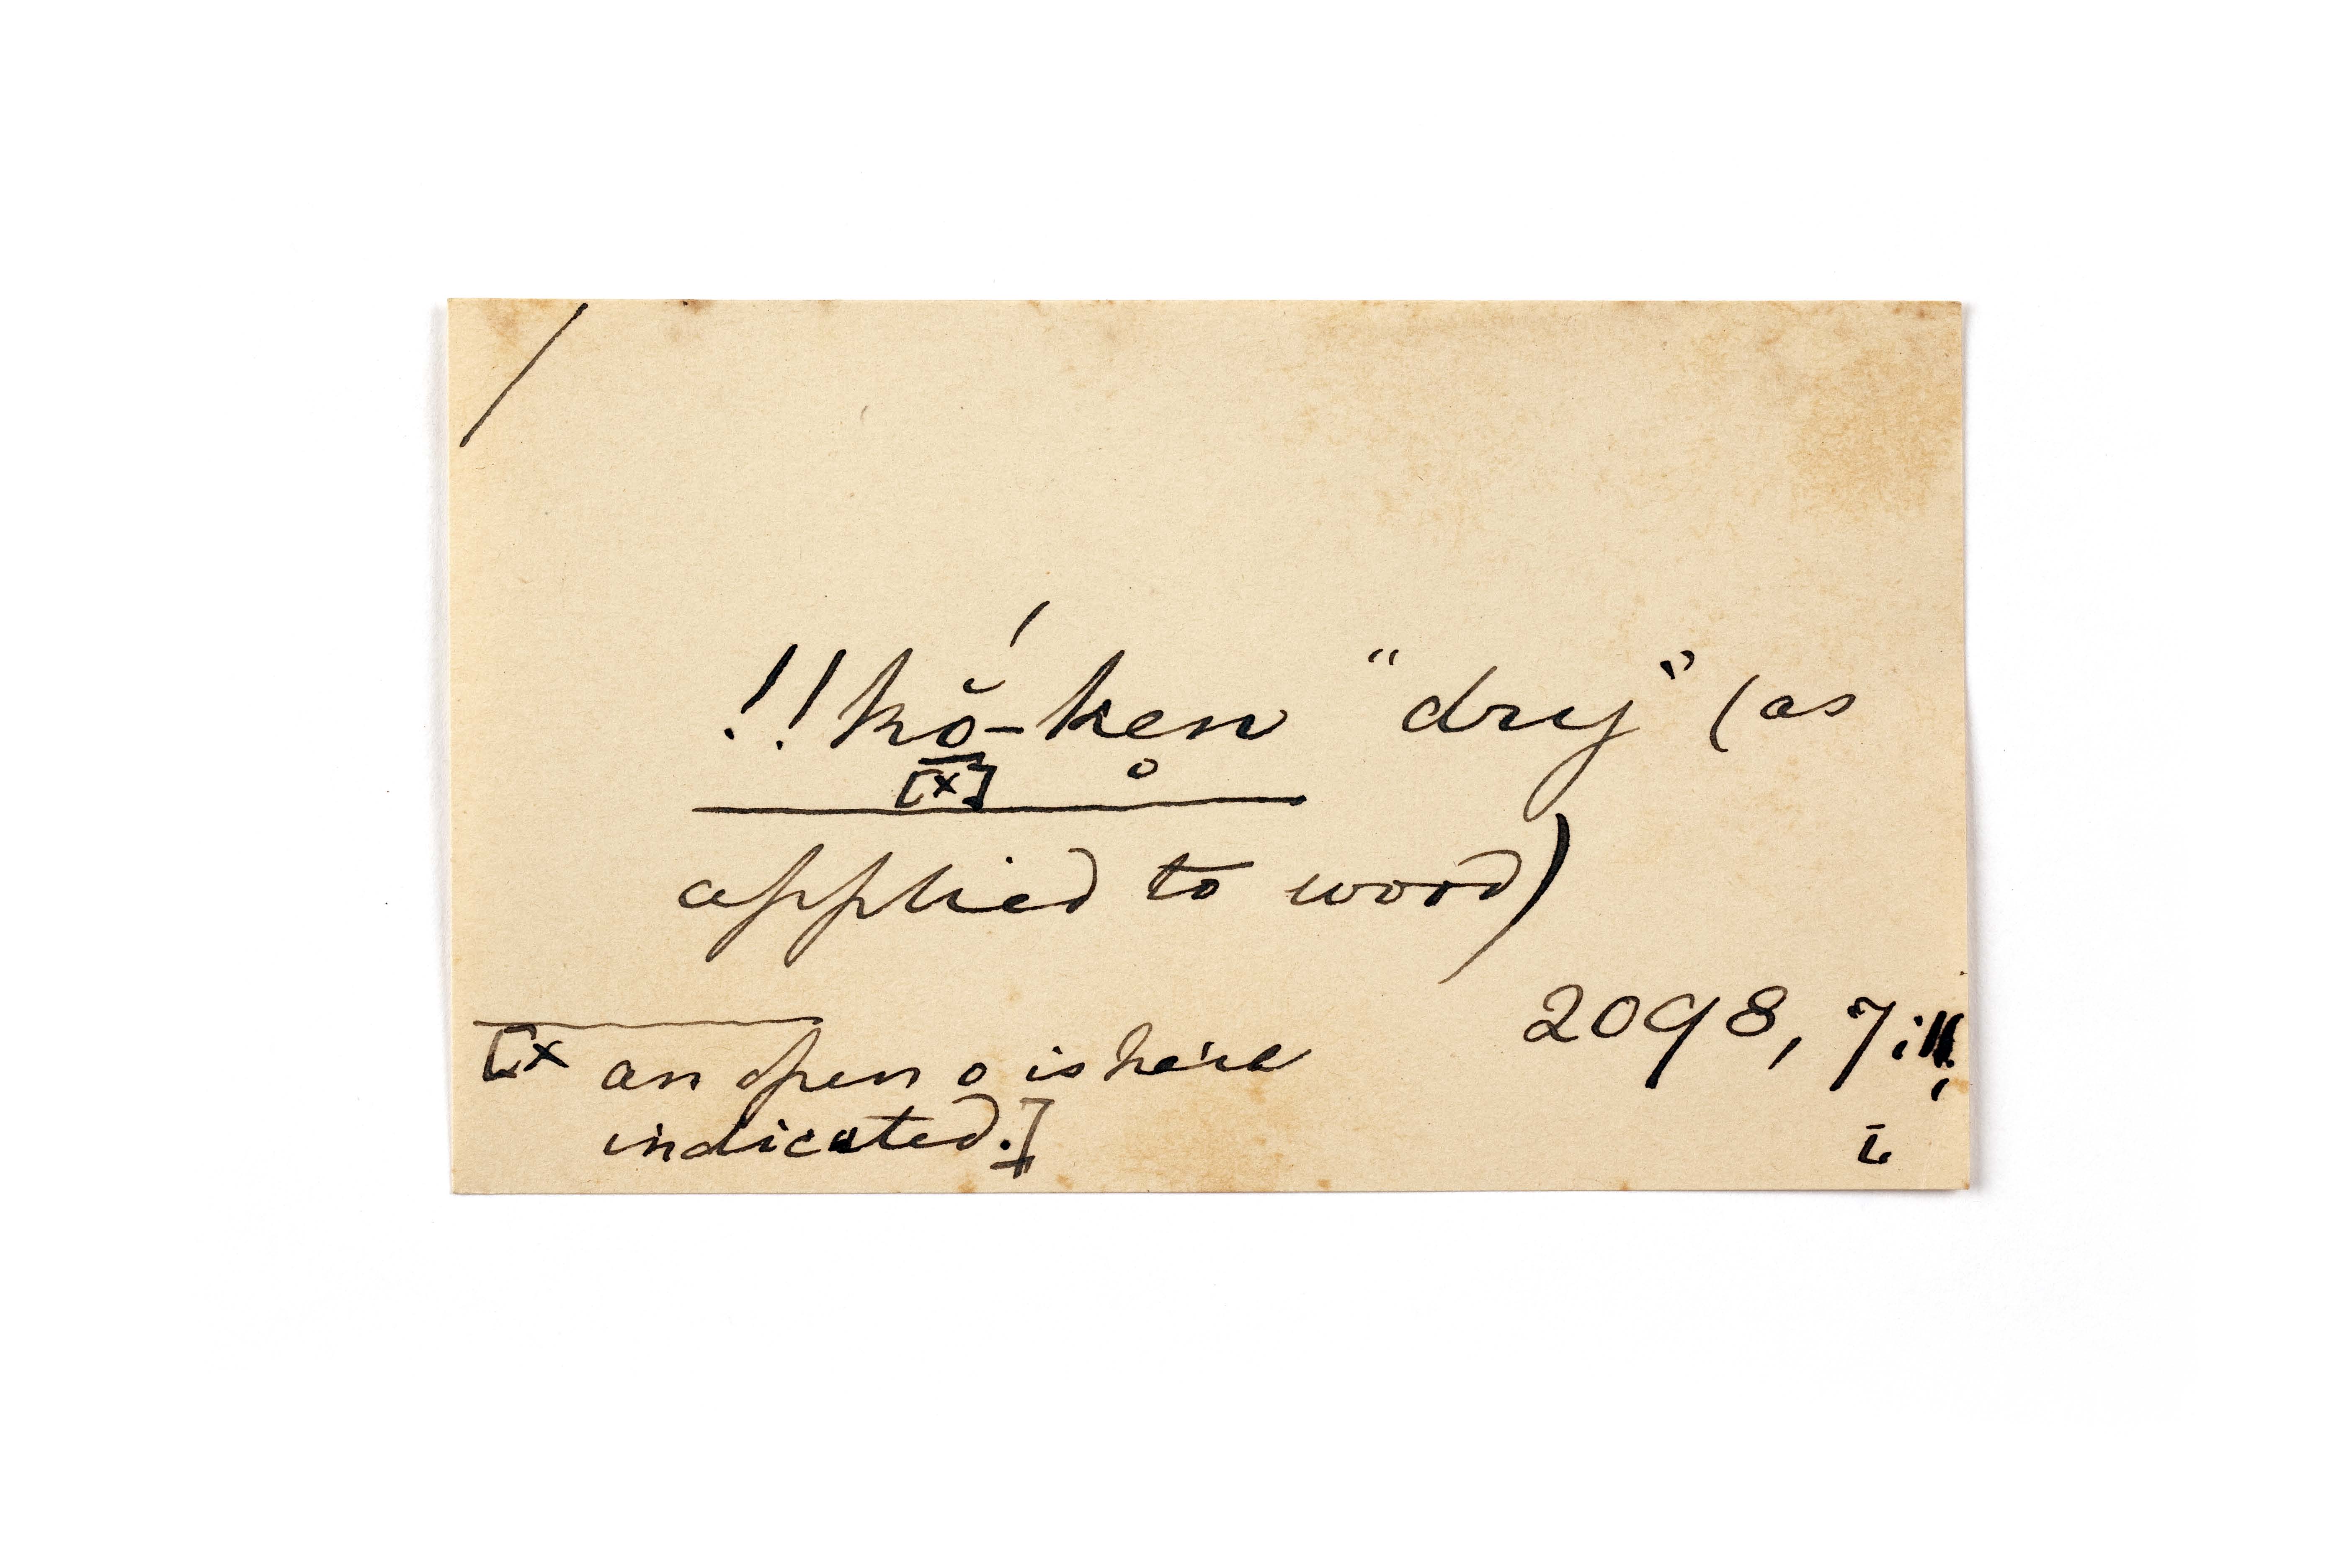 /
!!kŏ́-ken̥ "dry" (as
[x]
applied to wood)
2098, 7
[x an open o is here
indicated.]